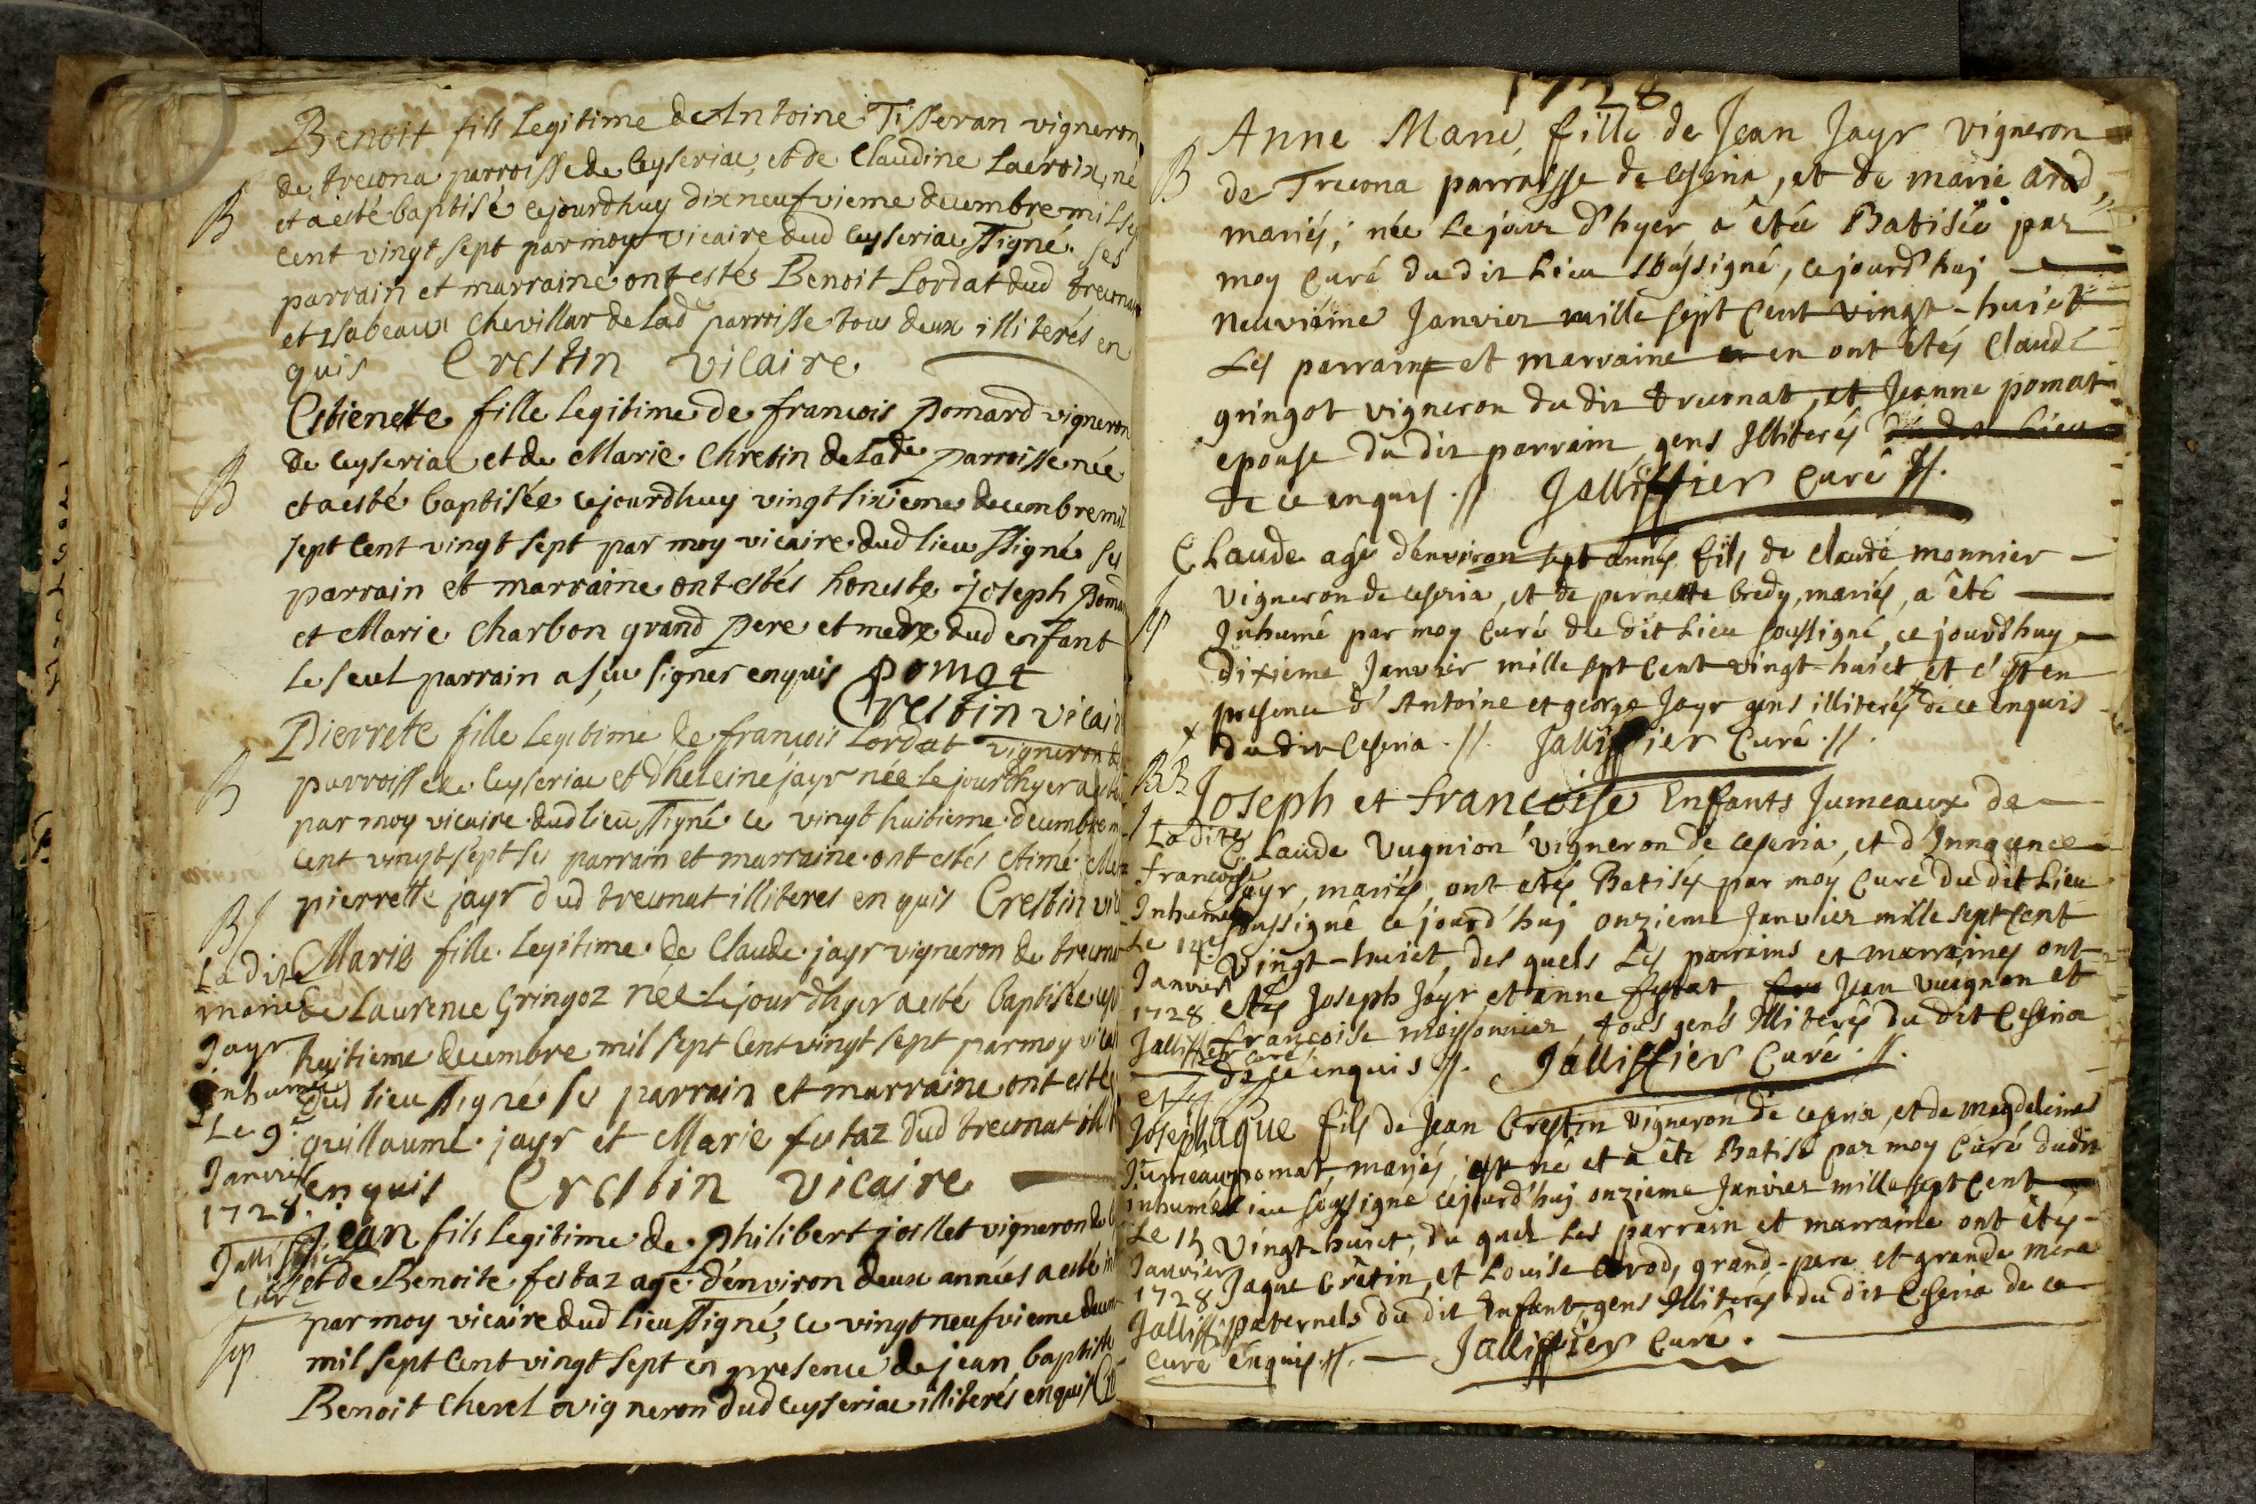 Benoit fils legitime de Antoine Tisseran vigneron
de trecona parroisse de Ceyseriac, et de Claudine Lacroix, né
B
et a esté baptisé cejourdhuy dixneufvieme decembre mil sep
cent vingt sept par moy vicaire dud Ceyseriac ssigné. Ses
parrain et marraine ont estés Benoit Lordat dud treconat
et Isabeaux Chevillar de lad parroisse tous deux illiterés en
quis Crestin vicaire
Estienette fille legitime de francois pomard vigneron
B
de Ceyseriac et de Marie Chretin de lade parroisse née
et a esté baptisée cejourdhuy vingt sixieme decembre mil
sept cent vingt sept par moy vicaire dud lieu ssigné ses
parrain et marraine ont estés honeste joseph poma
et Marie Charbon grand pere et mere dud enfant
le seul parrain a sçu signer enquis pomat
Crestin vicair
Pierrete fille legitime de francois Lordat vigneron de
B
parroisse de Ceyseriac et dheleine jayr née le jour dhyer a esté
par moy vicaire dud lieu ssigné ce vingt huitieme decembre m
cent vingt sept ses parrain et marraine ont estés Aimé
pierrette jayr dud treconat illiteres enquis Crestin vic
BS
Marie fille legitime de Claude jayr vigneron de trecona
de Laurence Gringoz née le jour dhyer a esté baptisée cejo
huitieme decembre mil sept cent vingt sept par moy vicai
dud lieu ssigné ses parrain et marraine ont estés
guillaume jayr et Marie festaz dud treconat illit
enquis Crestin vicaire
La dite
marie
Jayr
inhumée
Le 9e
Janvier
1728.
Jalliffier
Curé
Jean fils legitime de philibert joillet vigneron de
et de Benoite festaz agé d'environ deux années a esté in
par moy vicaire dud lieu ssigné, ce vingt neufvieme decem
Sep
mil sept cent vingt sept en presence de jean baptiste
Benoit cherel vigneron dud ceyseriac illiterés enquis
1728
Anne Marie, fille de Jean Jayr vigneron
B
de Trecona parroisse de Ceseria, et de marie arod,
mariés, née le jour d'hyer a êtée Batisée par
moy Curé du dit Lieu soussigné, ce jourd'huj
neuviême Janvier mille sept cent vingt-huict
Les parrain et marraine en ont êtés Claude
gringot vigneron du dit treconat, et Jeanne pomat
epouse du dit parrain gens Illiterés du dit Lieu
de ce enquis.// Jalliffier Curé //.
Claude agé d'environ sept années fils de Claude monnier
vigneron de ceseria, et de pernette bredy, mariés, a êté
Sep
Inhumé par moy Curé du dit Lieu soussigné, ce jourdhuy
dixieme Janvier mille sept cent vingt-huict, et c'est en
presence d'Antoine et george Jayr gens illiterés x de ce enquis
x du dit Ceseria.//. Jalliffier Curé.//.
BB
Joseph et francoise Enfants Jumeaux de
Claude Vugnion vigneron de ceseria, et d'Innocence
Jayr, mariés, ont etés Batisés par moy Curé du dit Lieu
soussigné ce jourd'huj onzieme Janvier mille sept cent
Vingt-huict, des quels Les parrains et marraines ont
etés Joseph Jayr et anne fytat, Jean vuignon et
francoise moissonnier, tous gens Illiterés du dit Ceseria
de ce enquis //. Jalliffier Curé.//.
La dite
francoise
Inhumée
Le 14e
Janvier
1728
Jalliffier
Curé
et
Joseph
Jumeau
inhumé
Le 15
Janvier
1728
Jalliffier
Curé
B
Jaque fils de Jean Crestin vigneron de ceseria, et de magdeleine
pomat, mariés, est né et a êté Batisé par moy Curé dudit
Lieu soussigné cejourd'huj onzieme Janvier mille sept cent
Vingt-huict, du quel Les parrain et marraine ont êtés
Jaque Crêtin, et Louise arod, grand-pere et grande mere
paternels du dit Enfant, gens Illiterés du dit Ceseria de ce
enquis.//. Jalliffier Curé.